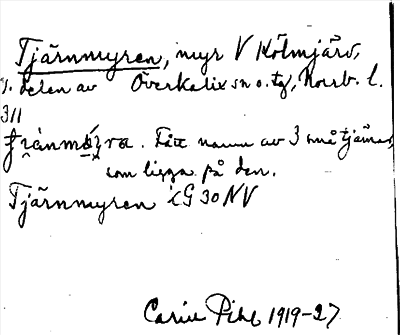 Tjärnmyren, myr V Kölmjärv,
N. delen av Överkalix sn o. tg, Norrb. l.
311
. Fått namn av 3 små tjärnar,
som ligga på den.
Tjärnmyren iG 30 NV
Carin Pihl 1919-27